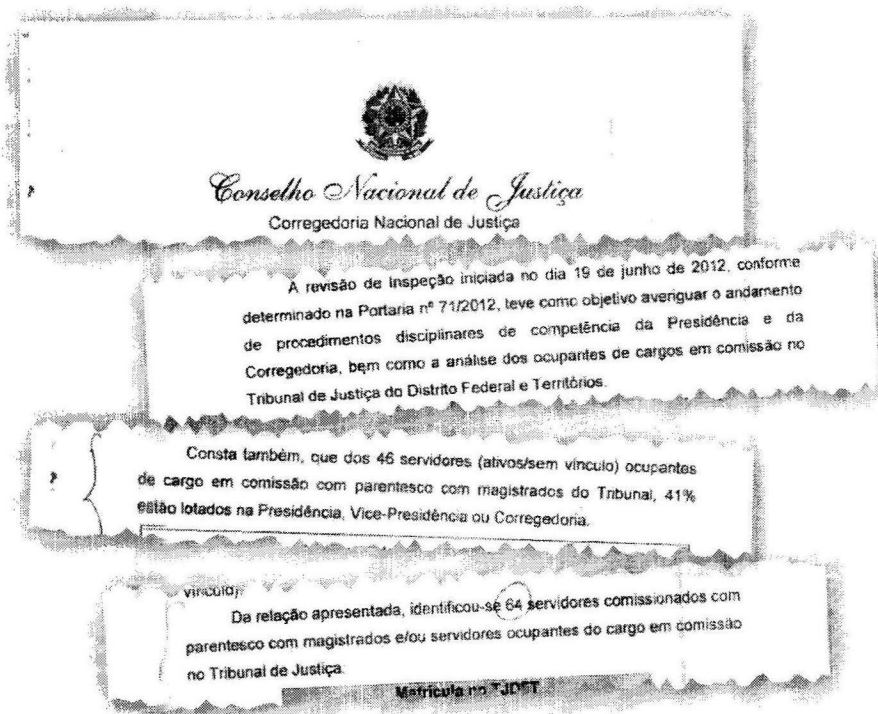 Conselho Nacional de Justiça
Corregedoria Nacional de Justiça
A revisão de inspeção iniciada no dia 19 de junho de 2012, conforme
determinado na Portaria nº 71/2012, teve como objetivo averiguar o andamento
de procedimentos disciplinares de competência da Presidência e da
Corregedoria, bem como a análise dos ocupantes de cargos em comissão no
Tribunal de Justiça do Distrito Federal e Territórios.
Consta também, que dos 46 servidores (ativos/sem vínculo) ocupantes
de cargo em comissão com parentesco com magistrados do Tribunal, 41%
estão lotados na Presidência, Vice-Presidência ou Corregedoria.
vínculo).
Da relação apresentada, identificou-se 64 servidores comissionados com
parentesco com magistrados e/ou servidores ocupantes do cargo em comissão
no Tribunal de Justiça:
Matrícula no TJDFT